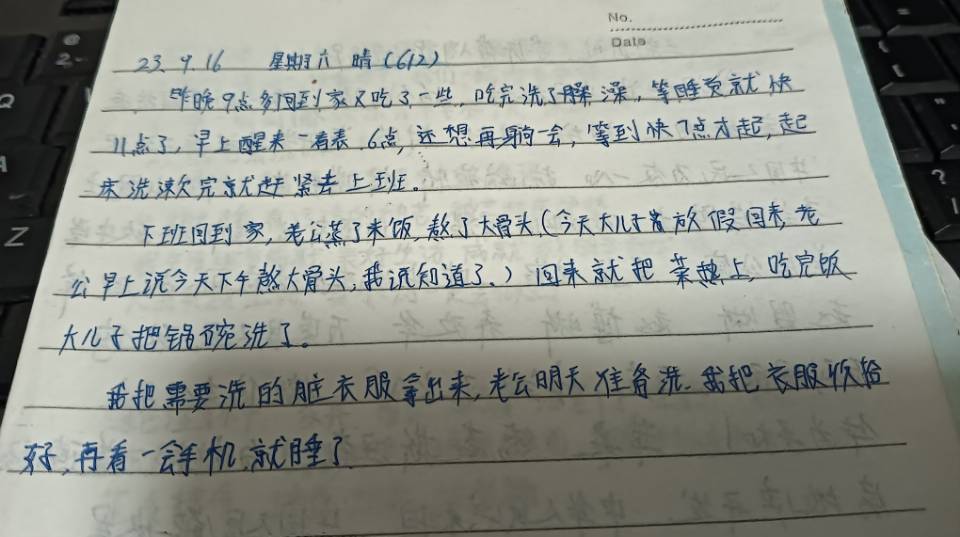 No.
Date
23.9.16 星期六 晴(612)
昨晚9点多回到家又吃了一些,吃完洗了臊澡,等睡觉就快
11点了,早上醒来一看表.6点,还想再躺一会,等到快7点才起,起
床洗漱完就赶紧去上班。
下班回到家,老公蒸了米饭,熬了大骨头(今天大儿子放假回来,老
公早上说今天下午熬大骨头,我说知道了。)回来就把菜热上,吃完饭
大儿子把锅碗洗了。
我把需要洗的脏衣服拿出来,老公明天准备洗.我把衣服收拾
好,再看一会手机,就睡了